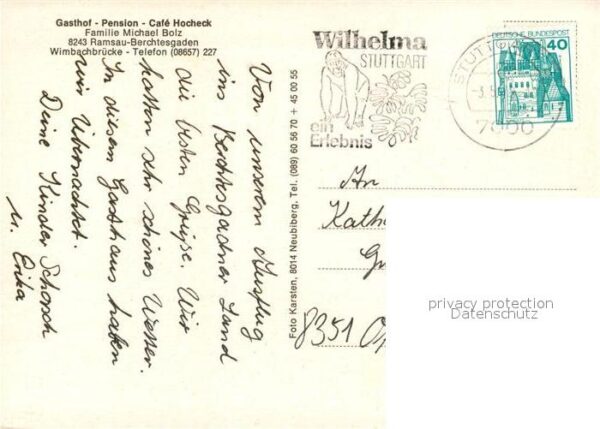 Gasthof - Pension - Café Hocheck
Familie Michael Bolz
8243 Ramsau-Berchtesgaden
Wimbachbrücke - Telefon (08657) 227
Von unserem Ausflug
ins Bechtesgadner Land
die besten Grüße. Wir
hatten sehr schönes Wetter.
In diesem Gasthaus haben
wir übernachtet.
Deine Kinder Schorsch
u. Erika
Foto Karsten, 8014 Neubiberg, Tel. (089) 60 56 70 + 45 00 55
Wilhelma
STUTTGART
ein
Erlebnis
STUTTG
7000
DEUTSCHE BUNDESPOST
40
An
Kath
8351
privacy protection
Datenschutz